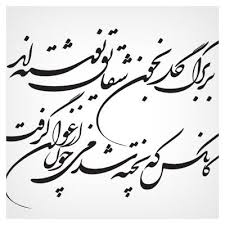 بر برگ گل بخون شقایق نوشته اند
کانکس که پخته شد می چون ارغوان گرفت